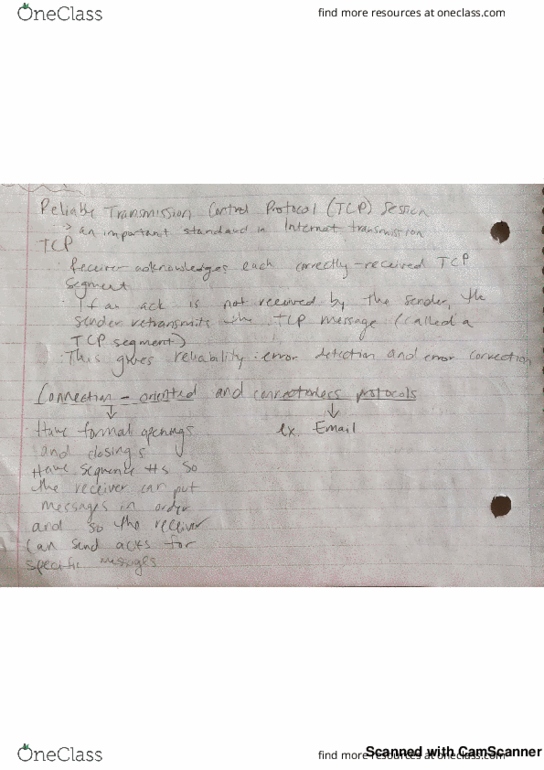 OneClass
find more resources at oneclass.com
Reliable Transmission Control Protocol (TCP) Session
> an important standard in Internet transmission
TCP
· Receiver acknowledges each correctly-received TCP
segment
· If an ack is not received by the sender, the
sender retransmits the TCP message (called a
TCP segment)
· This gives reliability: error detection and error correction
Connection-oriented and connectionless protocols
↓ ↓
Have formal openings ex. Email
and closings
Have sequence #s so
the receiver can put
messages in order
and so the receiver
can send acks for
specific messages
OneClass
find more resources at oneclass.com
Scanned with CamScanner